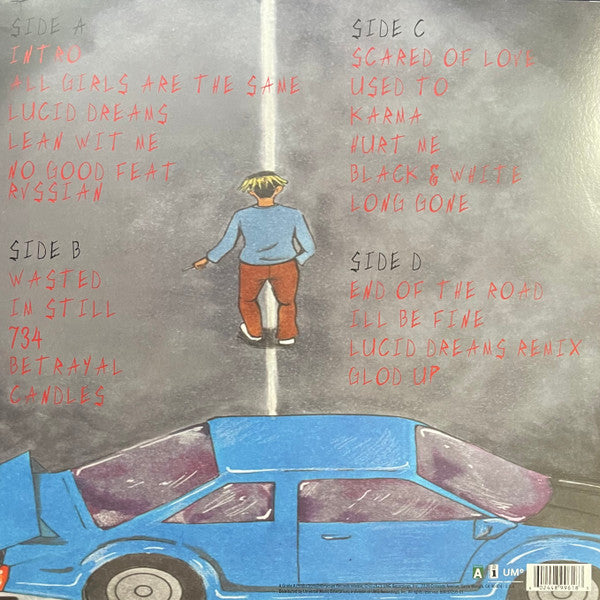 SIDE A
INTRO
ALL GIRLS ARE THE SAME
LUCID DREAMS
LEAN WIT ME
NO GOOD FEAT
RVSSIAN
SIDE B
WASTED
IM STILL
734
BETRAYAL
CANDLES
SIDE C
SCARED OF LOVE
USED TO
KARMA
HURT ME
BLACK & WHITE
LONG GONE
SIDE D
END OF THE ROAD
ILL BE FINE
LUCID DREAMS REMIX
GLOD UP
A i UMe